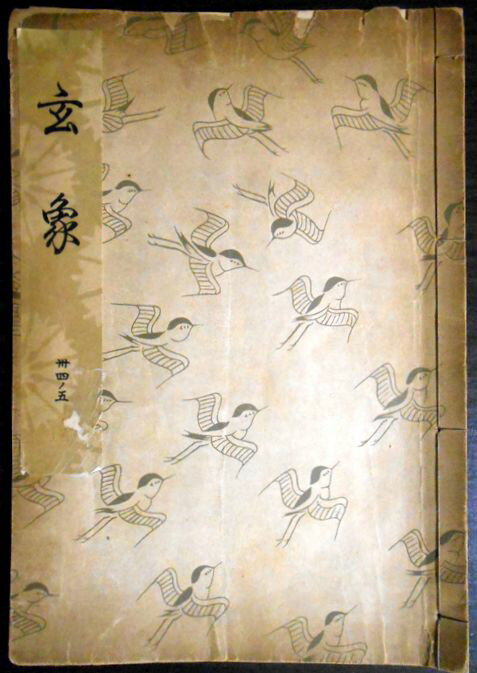 玄象
卅四ノ五